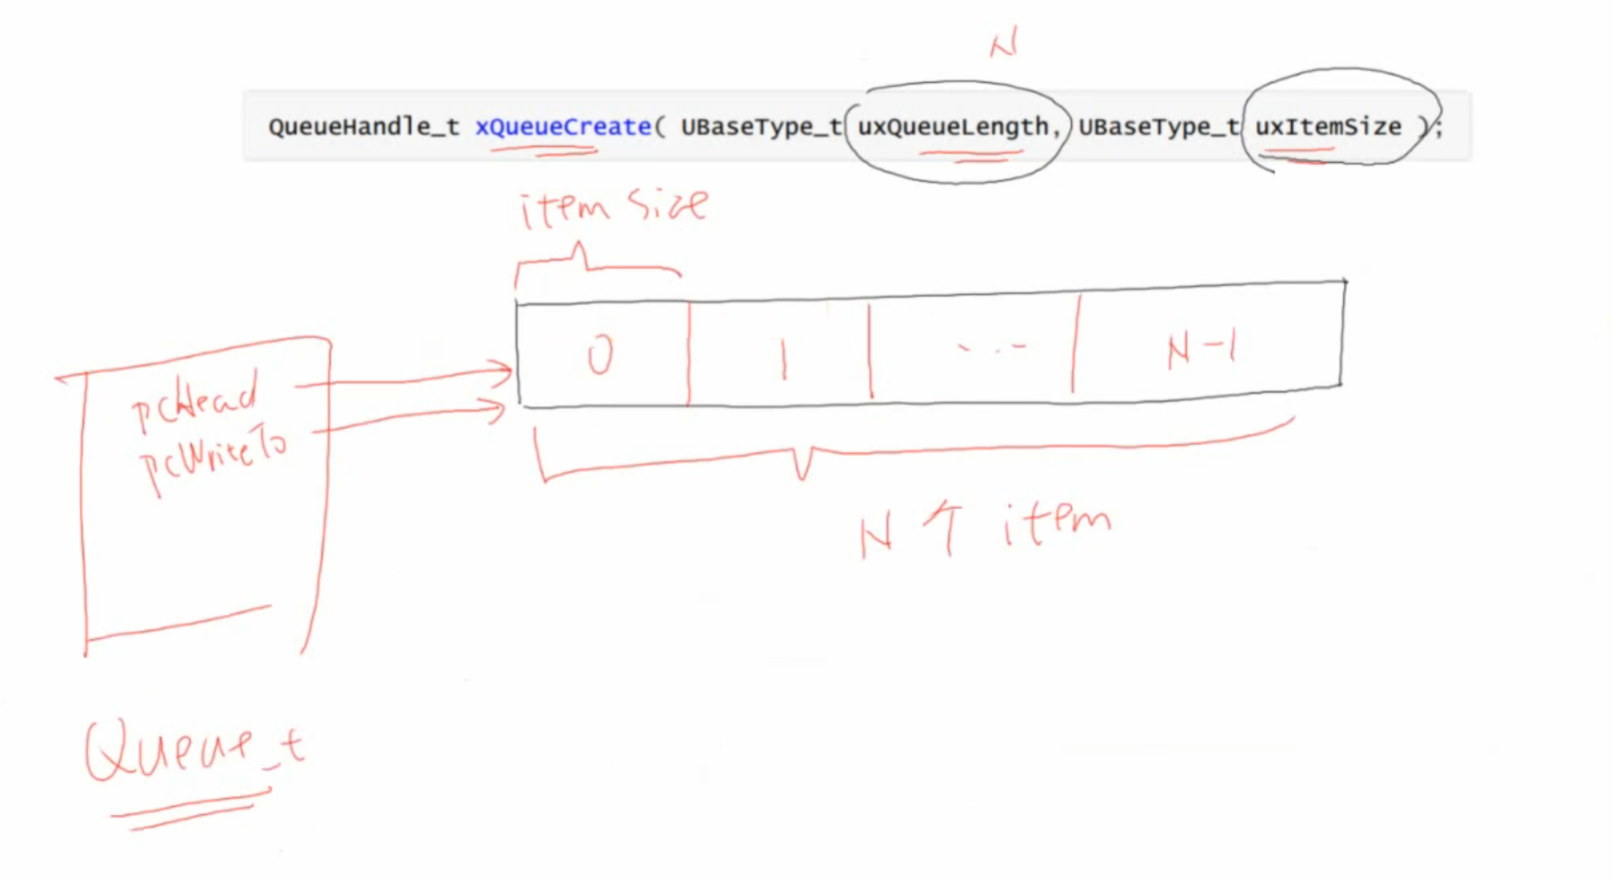 N
QueueHandle_t xQueueCreate( UBaseType_t uxQueueLength, UBaseType_t uxItemSize );
item size
0 1 ... N-1
pcHead
pcWriteTo
N个 item
Queue_t